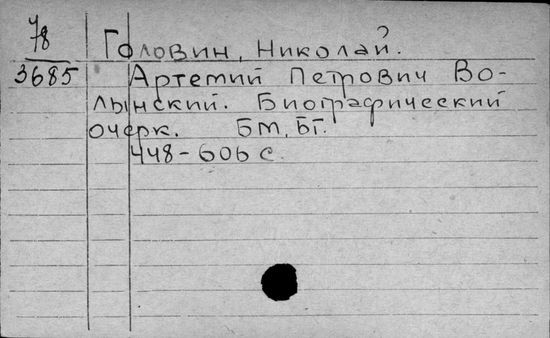 78 Головин, Николай.
3685 Артемий Петрович Во-
лынский. Биографический
очерк. Бм, Бг.
448-606 с.